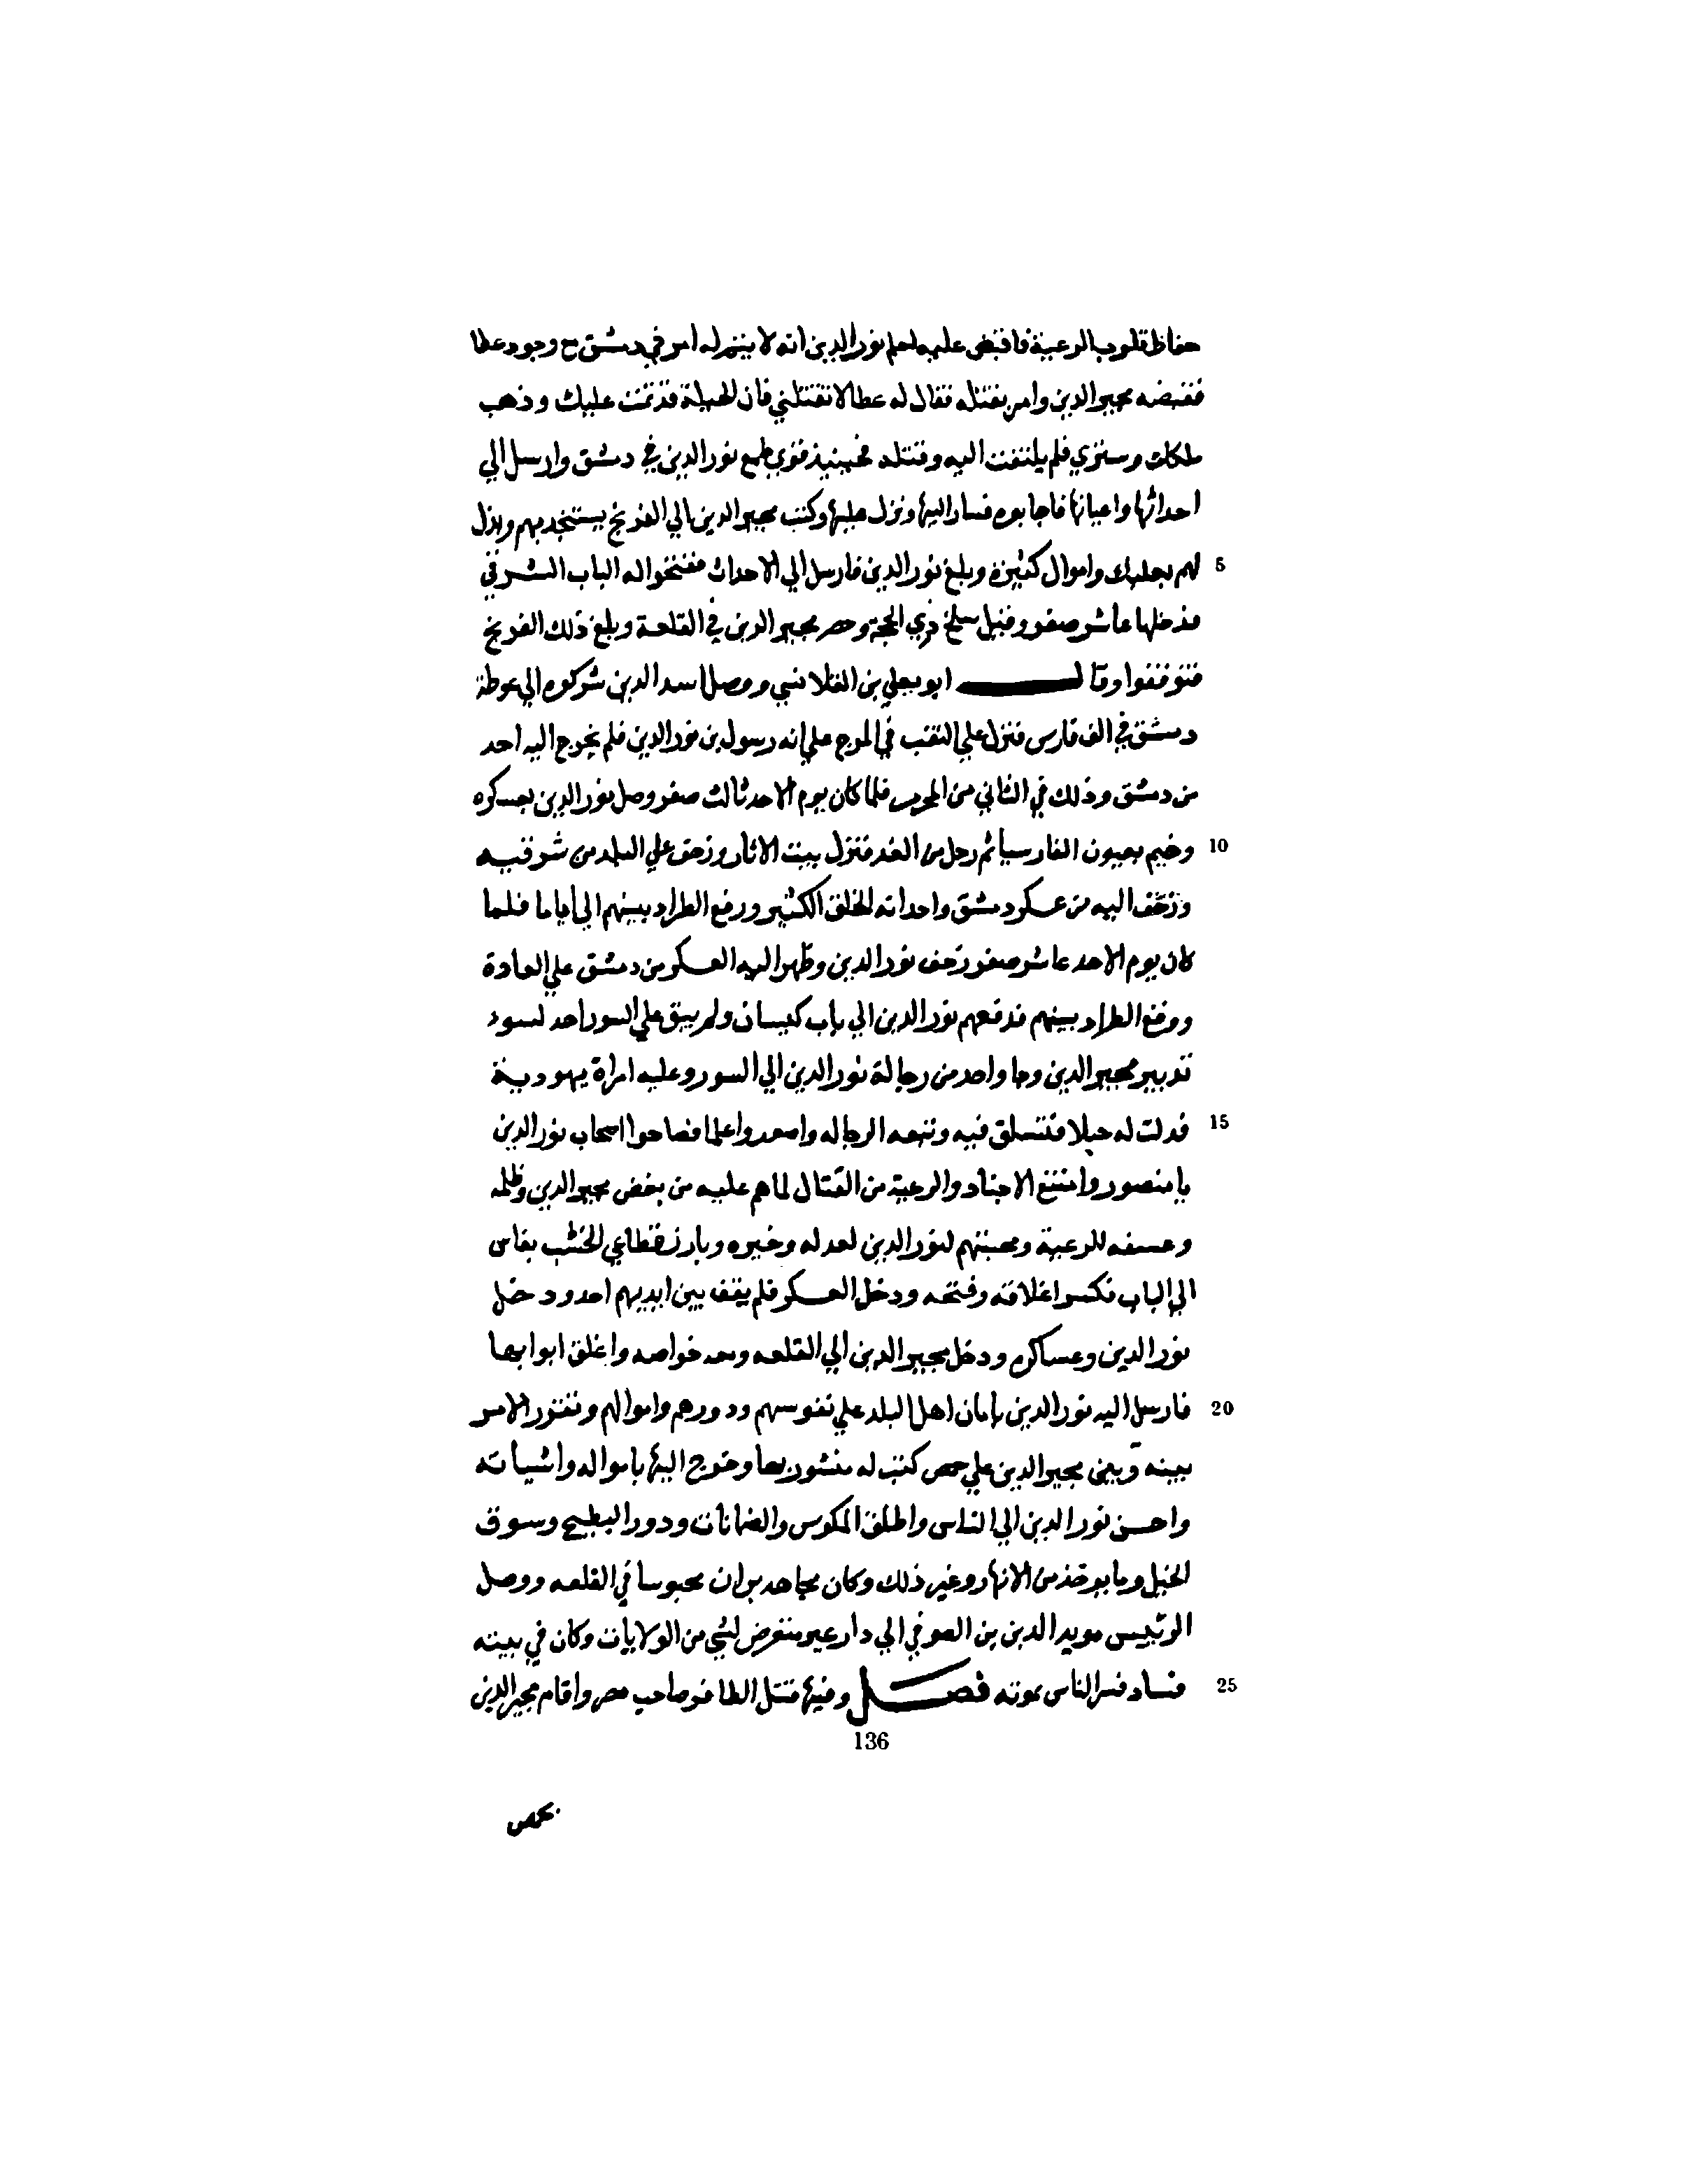 حفاظ قلوب الرعية فاقبض عليه لعلم نور الدين انه لا يتم له امر في دمشق مع وجود عطا
فقبضه مجير الدين وامر بقتله فقال له عطا لا تقتلني فان الحيلة قد تمت عليك وذهب
ملكك وستري فلم يلتفت اليه وقتله فحينيذ قوي طمع نور الدين في دمشق وارسل الي
احداثها واعيانها فاجابوه فسار اليها ونزل عليها وكتب مجير الدين الي الفرنج يستنجد بهم وبذل
5 لهم بعلبك واموال كثيرة وبلغ نور الدين فارسل الي الاحداث ففتحوا له الباب الشرقي
فدخلها عاشر صفر وقيل سلخ ذي الحجة وحصر مجير الدين في القلعة وبلغ ذلك الفرنج
فتوقفوا وقال ابو يعلي بن القلانسي ووصل اسد الدين شركوه الي غوطة
دمشق في الف فارس فنزل علي القنب في المرج علي انه رسول من نور الدين فلم يخرج اليه احد
من دمشق وذلك في الثاني من المحرم فلما كان يوم الاحد ثالث صفر وصل نور الدين بعسكره
10 وخيم بعيون الفارسيا ثم رحل من الغد فنزل ببيت الاثار وزحف علي البلد من شرقيه
وزحف اليه من عسكر دمشق واحداثه الخلق الكثير ووقع الطراد بينهم الي اياما فلما
كان يوم الاحد عاشر صفر زحف نور الدين وظهر اليه العسكر من دمشق علي العادة
ووقع الطراد بينهم فدفعهم نور الدين الي باب كيسان ولم يبق علي السور احد لسوء
تدبير مجير الدين وجا واحد من رجالة نور الدين الي السور وعليه امراة يهودية
15 فدلت له حبلا فتسلق فيه وتبعه الرجاله واصعدوا علما فصاحوا اصحاب نور الدين
يا منصور وامتنع الاجناد والرعية من القتال لما هم عليه من بغض مجير الدين وظلمه
وعسفه للرعية ومحبتهم لنور الدين لعدله وخيره وبادر قطاعي الخشب بفاس
الي الباب فكسر اغلاقه وفتحه ودخل العسكر فلم يقف بين ايديهم احد ودخل
نور الدين وعساكره ودخل مجير الدين الي القلعه ومعه خواصه واغلق ابوابها
20 فارسل اليه نور الدين بامان اهل البلد علي نفوسهم ودورهم واموالهم وتقرر الامر
بينه وبين مجير الدين علي حمص كتب له منشور بها وخرج اليها باموالة واشياته
واحسن نور الدين الي الناس واطلق المكوس والضمانات ودور البطيح وسوق
الخيل وما يوخذ من الانهار وغير ذلك وكان مجاهد بزان محبوسا في القلعه ووصل
الرئيس مويد الدين بن الصوفي الي داره غير متعرض لشي من الولايات وكان في بيته
25 فساد فسر الناس بموته فصل وفيها قتل الظافر صاحب مصر واقام مجير الدين
136
بحمص